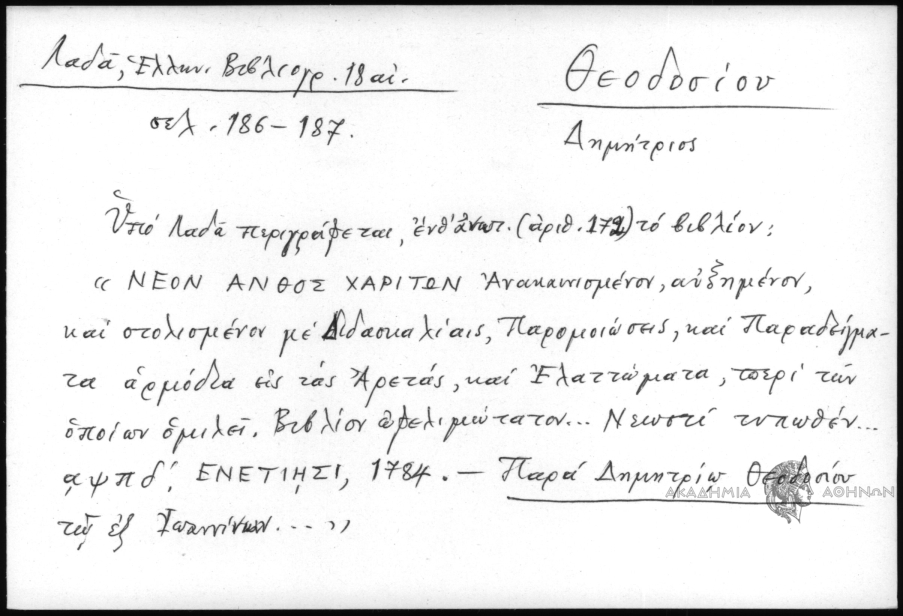 Λαδᾶ, Ἑλλην. Βιβλιογρ. 18 αἰ.
σελ. 186–187.
Θεοδοσίου
Δημήτριος
Ὑπό Λαδᾶ περιγράφεται, ἐνθ' ἀνωτ. (ἀριθ. 172) τό βιβλίον:
« ΝΕΟΝ ΑΝΘΟΣ ΧΑΡΙΤΩΝ Ἀνακαινισμένον, αὐξημένον,
καί στολισμένον μέ Διδασκαλίαις, Παρομοιώσεις, καί Παραδείγμα-
τα ἁρμόδια εἰς τάς Ἀρετάς, καί Ἐλαττώματα, περί τῶν
ὁποίων ὁμιλεῖ. Βιβλίον ὠφελιμώτατον... Νεωστί τυπωθέν...
αψπδ', ΕΝΕΤΙῌΣΙ, 1784. — Παρά Δημητρίῳ Θεοδοσίου
τῷ ἐξ Ἰωαννίνων... »
ΑΚΑΔΗΜΙΑ ΑΘΗΝΩΝ